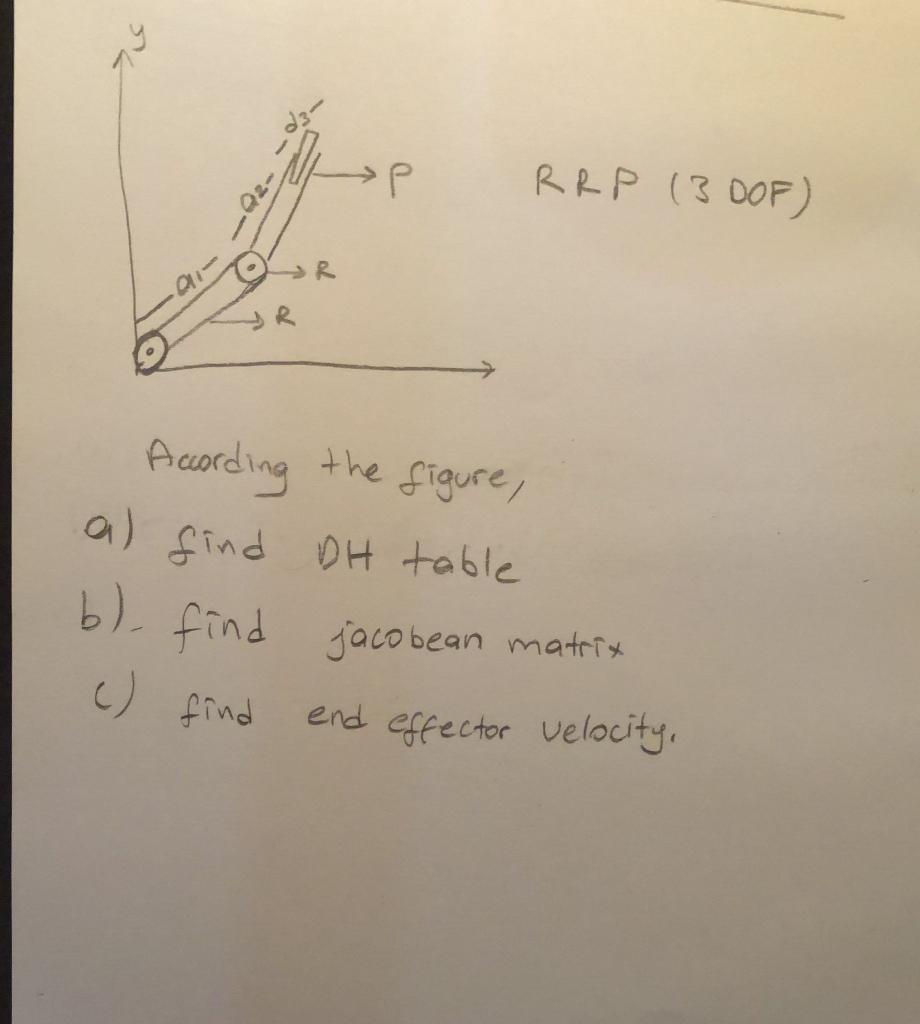 y
d3
a2
P
RRP (3 DOF)
a1
R
R
According the figure,
a) find DH table
b)- find jacobean matrix
c) find end effector velocity.